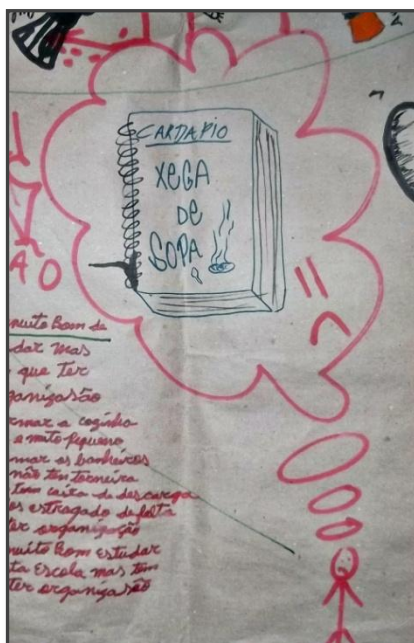 CARDAPIO
XEGA
DE
SOPA
ÃO
muito Bom de
dar mas
que Ter
ganizasão
rmar a cozinha
e muto pequeno
mar os banheiros
não tem torneira
tem caixa de descarga
os estragado de falta
ter organização
muito Bom estudar
ta Escola mas tem
ter organizasão